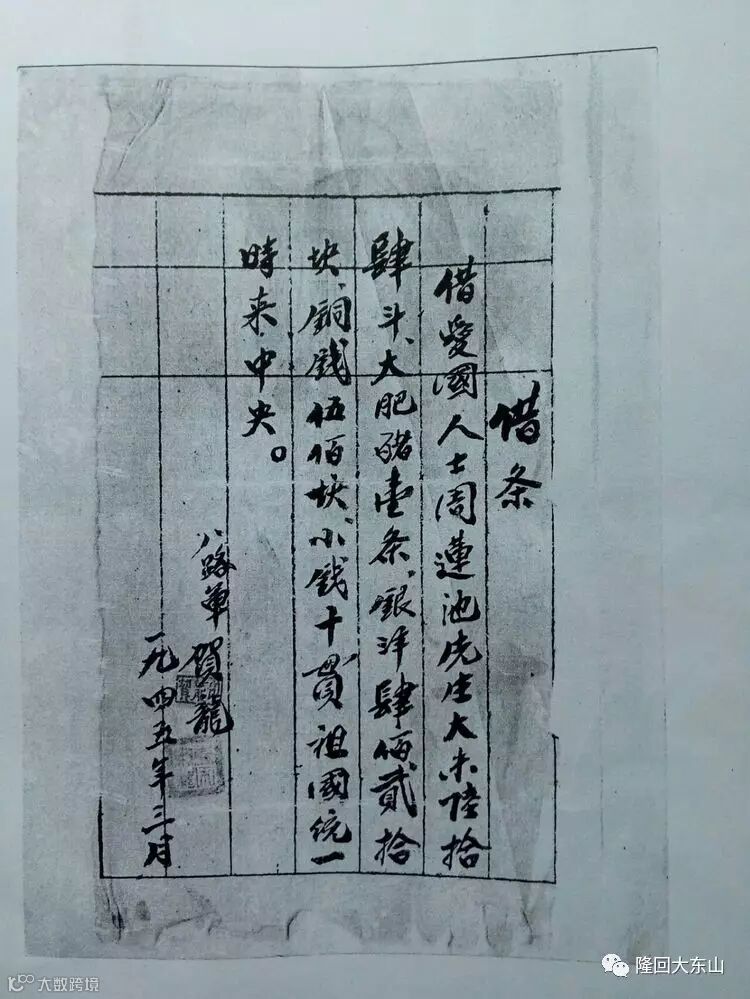 借条
借愛國人士周蓮池先生大米陸拾
肆斗、大肥豬壹条、銀洋肆佰貳拾
块、銅錢伍佰块、小錢十貫祖國統一
時来中央。
八路軍 賀龍
一九四五年三月
大数跨境
隆回大东山